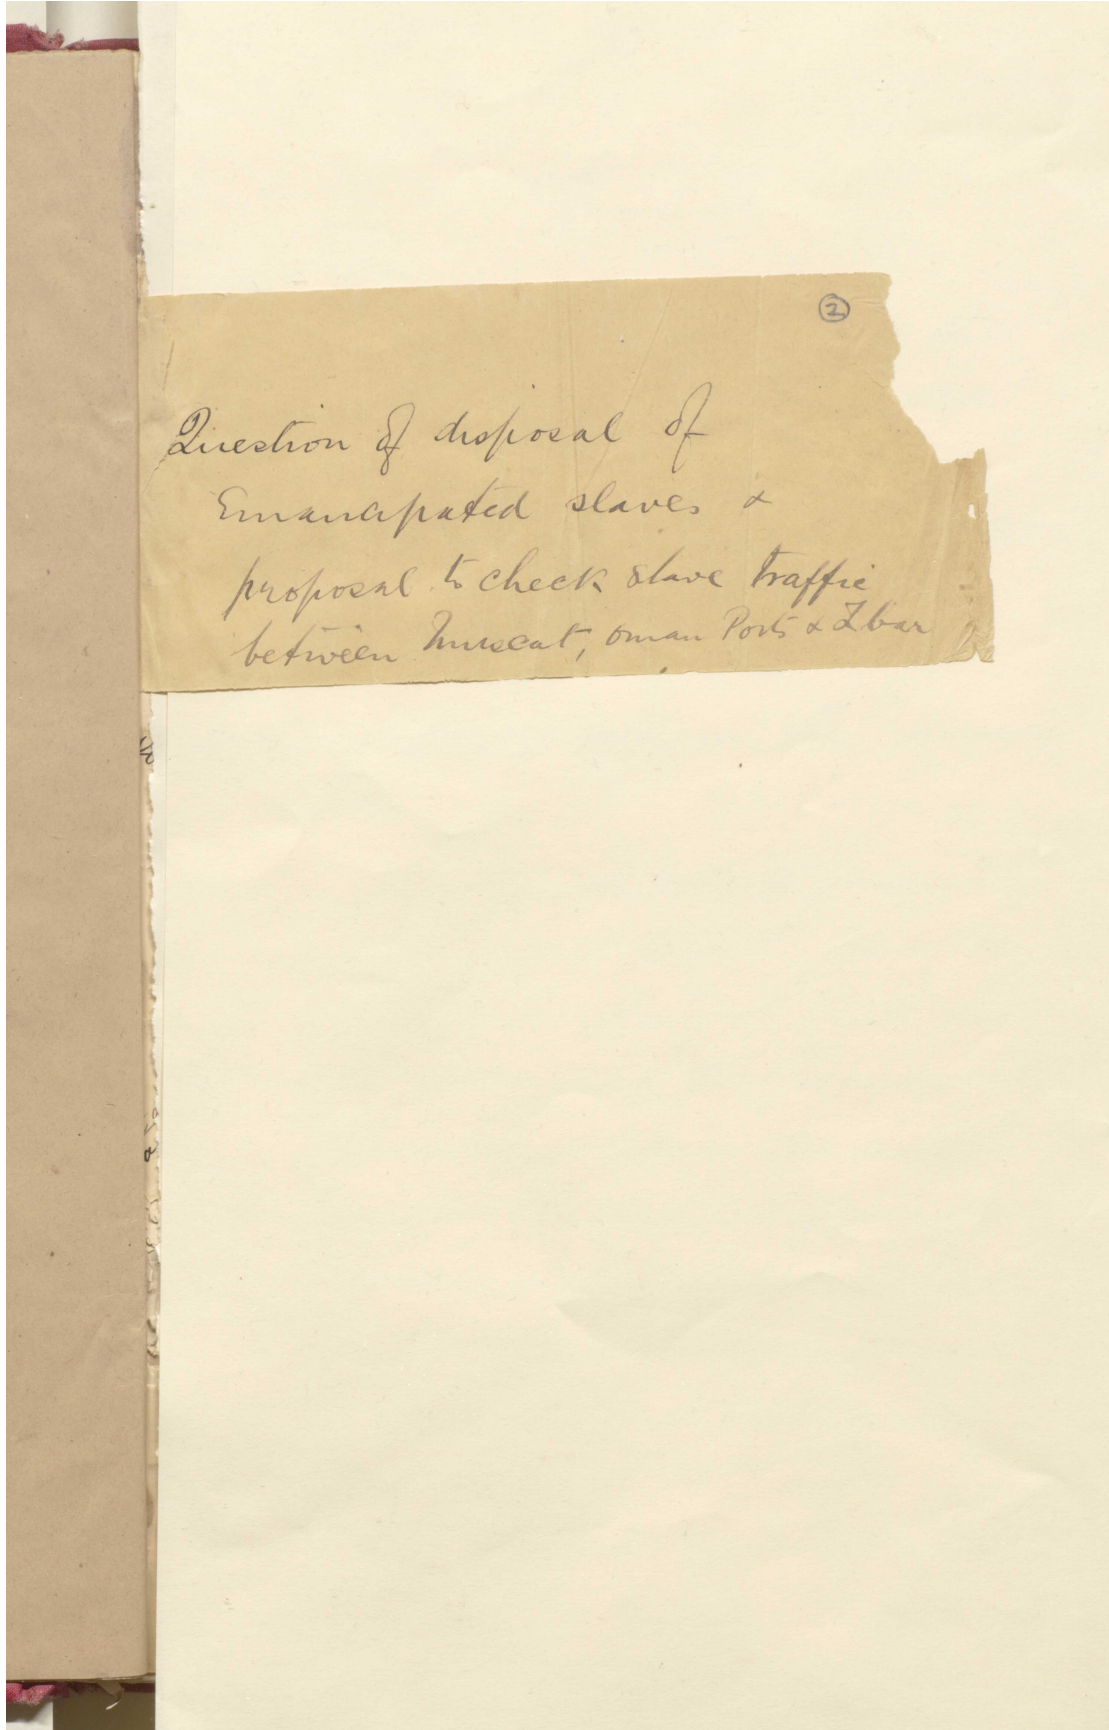 2
Question of disposal of
Emancipated slaves &
proposal to check slave traffic
between Muscat, Oman Ports & Zbar